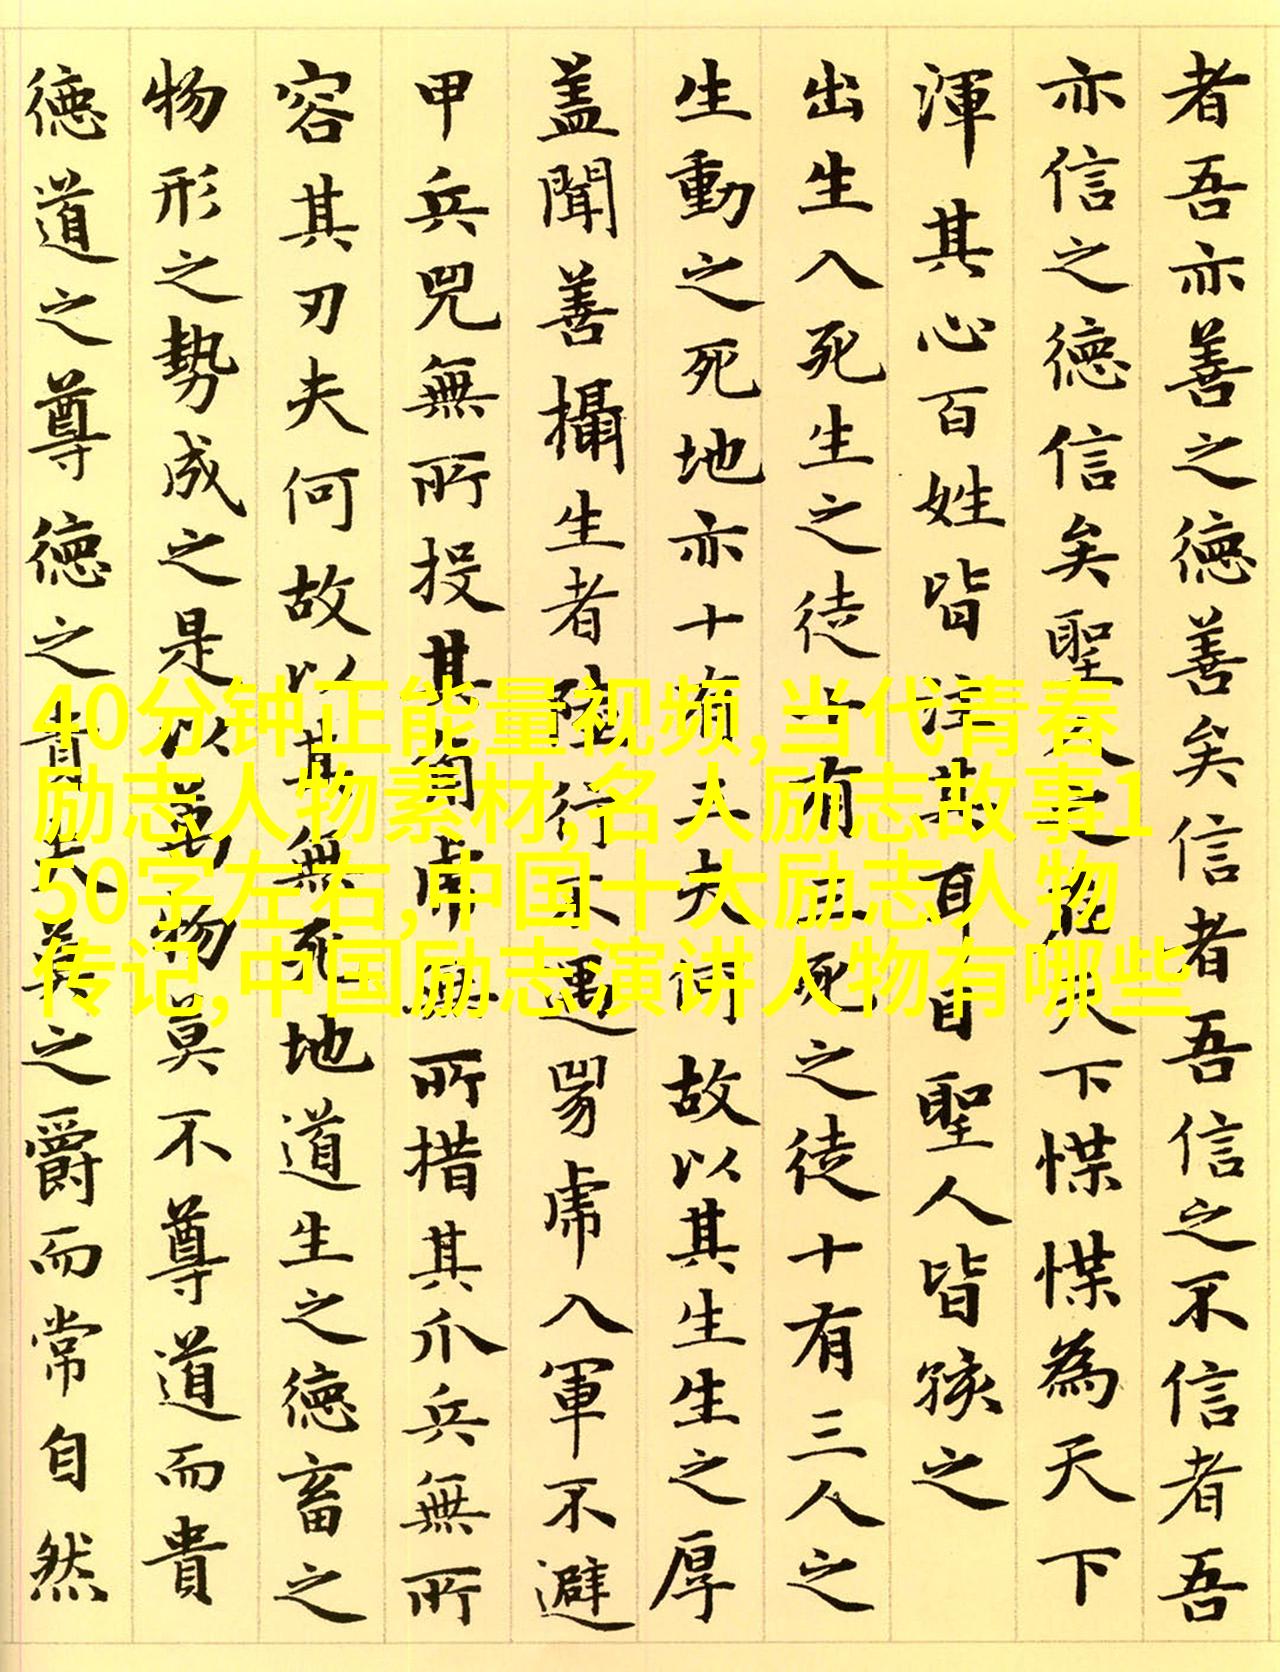 者吾亦善之德善矣信者吾信之不信者吾
亦信之德信矣聖人之在天下惵惵為天下
渾其心百姓皆注其耳目聖人皆孩之
出生入死生之徒十有三死之徒十有三人之
生動之死地亦十有三夫何故以其生生之厚
蓋聞善攝生者陸行不遇兕虎入軍不避
甲兵兕無所投其角虎無所措其爪兵無所
容其刃夫何故以其無死地道生之德畜之
物形之勢成之是以萬物莫不尊道而貴
德道之尊德之貴夫莫之爵而常自然
40分钟正能量视频,当代青春
励志人物素材,名人励志故事1
50字左右,中国十大励志人物
传记,中国励志演讲人物有哪些